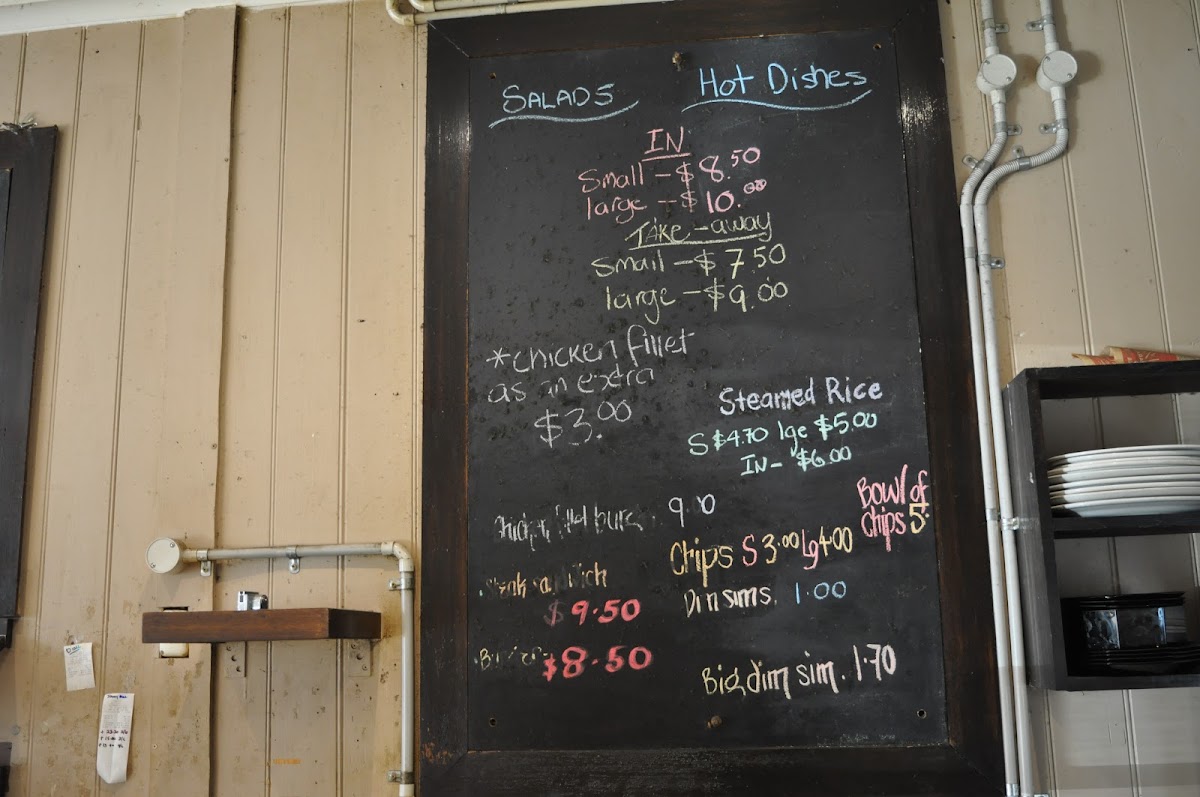 SALADS
Hot Dishes
IN
Small - $8.50
large - $10.00
TAKE-away
small - $7.50
large - $9.00
*chicken fillet
as an extra
$3.00
Steamed Rice
S $4.70 lge $5.00
IN- $6.00
Bowl of
Chips 5.
9.00
Chips S 3.00 Lg 4.00
$9.50
Dimsims. 1.00
$8.50
Big dim sim. 1.70